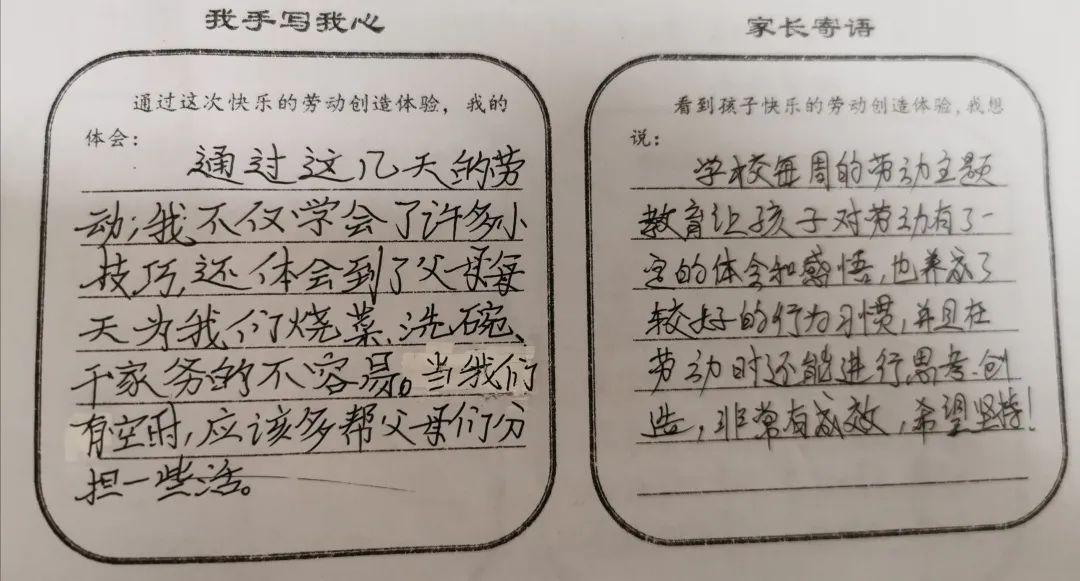 我手写我心
通过这次快乐的劳动创造体验，我的
体会：
通过这几天的劳
动，我不仅学会了许多小
技巧，还体会到了父母每
天为我们烧菜、洗碗、
干家务的不容易。当我们
有空时，应该多帮父母们分
担一些活。
家长寄语
看到孩子快乐的劳动创造体验，我想
说：
学校每周的劳动主题
教育让孩子对劳动有了一
定的体会和感悟，也养成了
较好的行为习惯，并且在
劳动时还能进行思考、创
造，非常有成效，希望坚持！